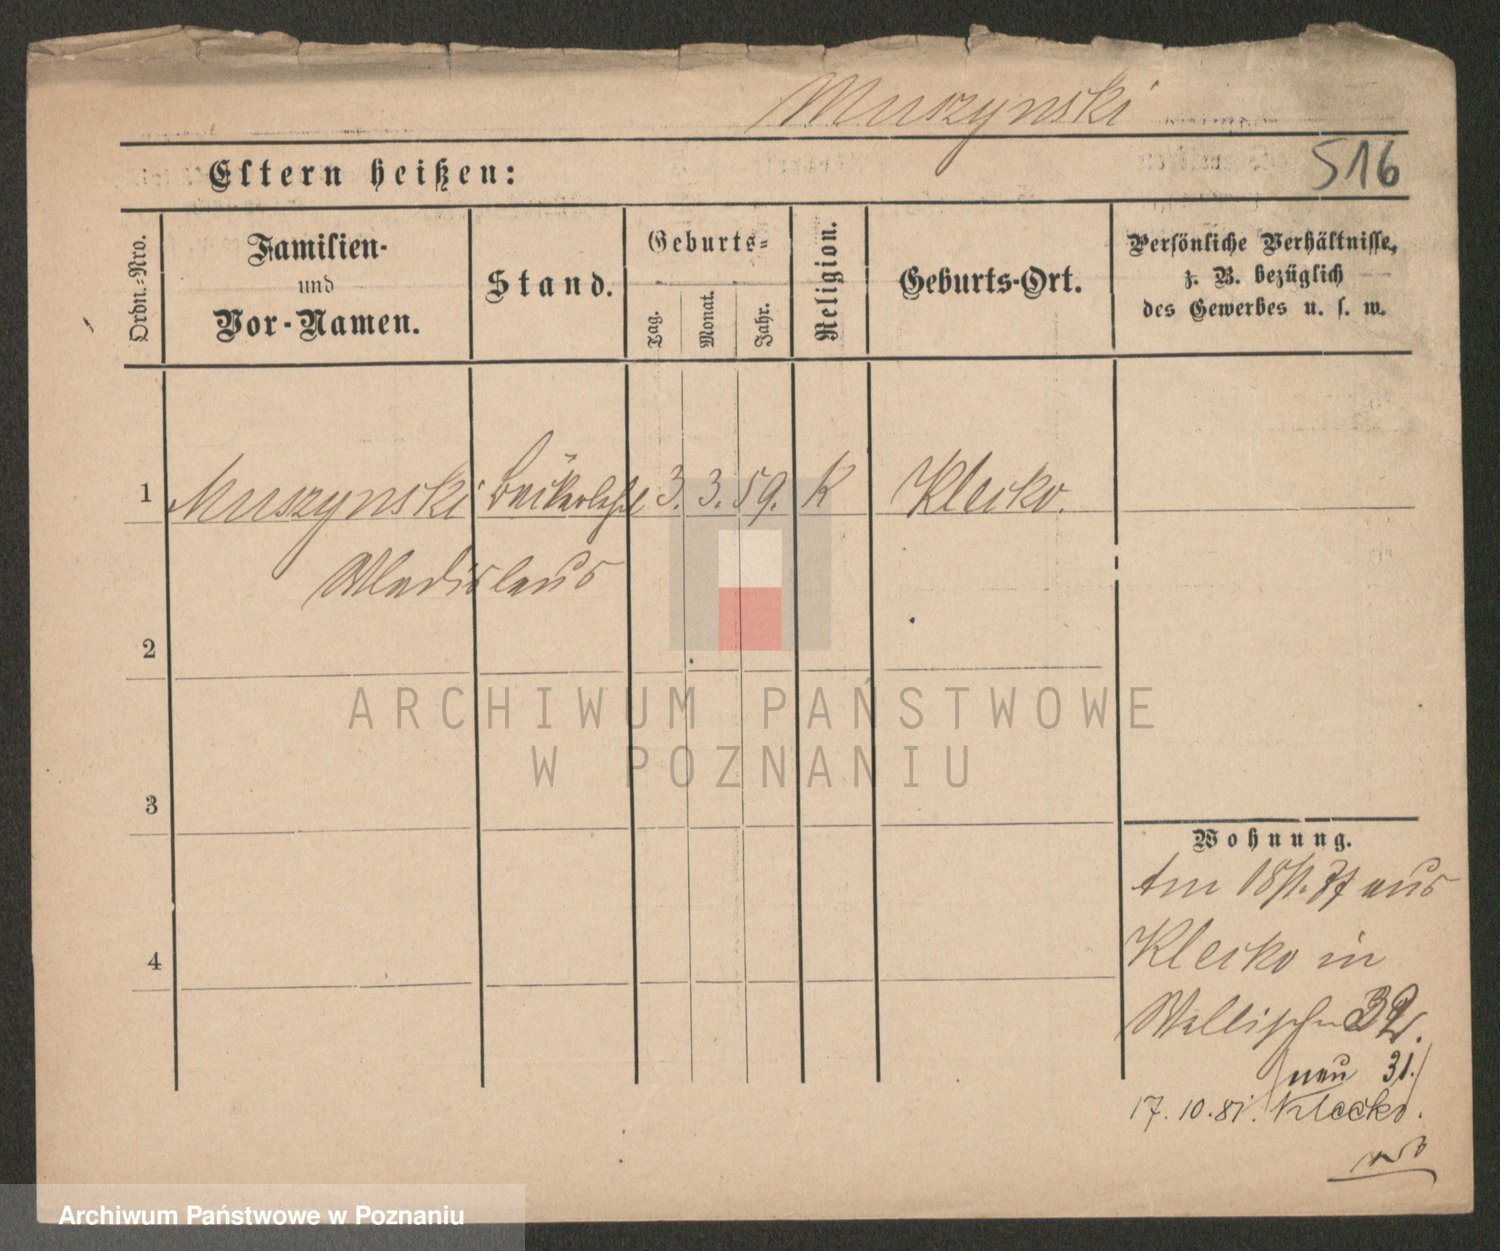 Muszynski
516
Eltern heißen:
Ordn.-Nro.
Familien-
und
Vor-Namen.
Stand.
Geburts-
Tag.
Monat.
Jahr.
Religion.
Geburts-Ort.
Persönliche Verhältnisse,
z. B. bezüglich
des Gewerbes u. s. w.
1 Muszynski 3. 3. 59. K Klecko.
Wladislaus
2
3
4
Wohnung.
Am aus
Klecko in
Wallische
neu 31.
17.10.81. Klecko.
ARCHIWUM PAŃSTWOWE
W POZNANIU
Archiwum Państwowe w Poznaniu